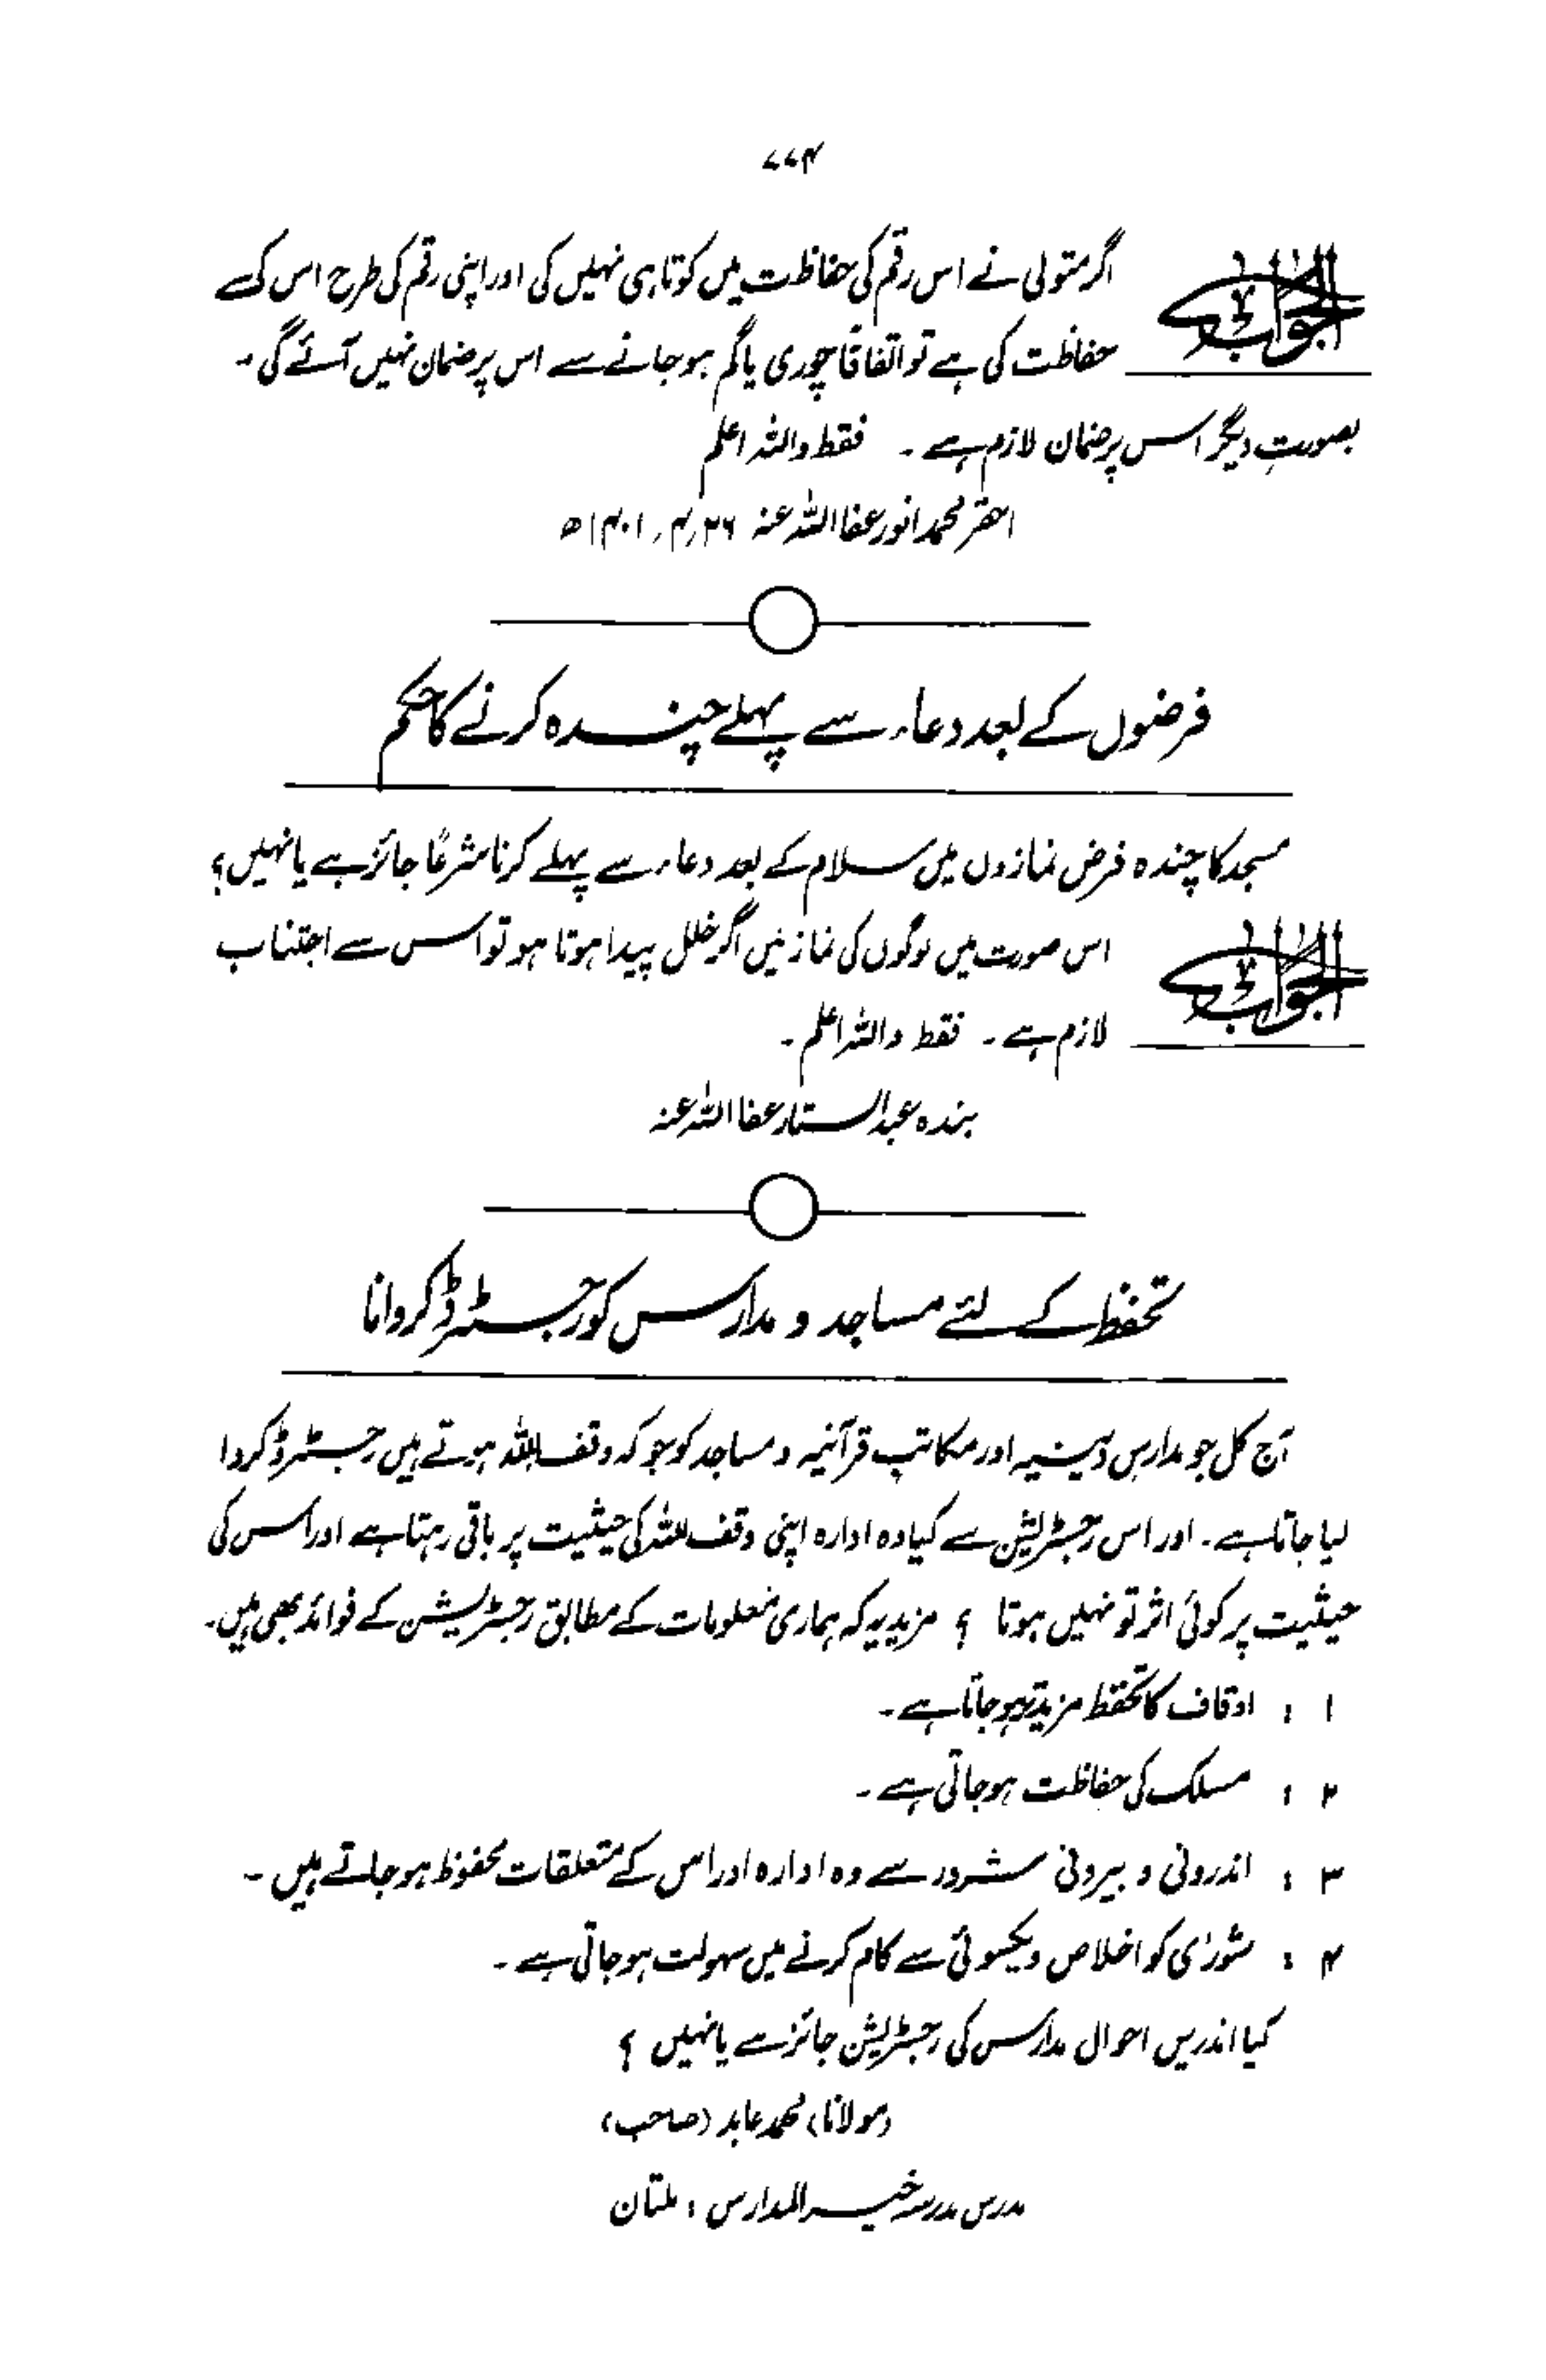 ۷۷۴
الجواب
اگر متولی نے اس رقم کی حفاظت میں کوتاہی نہیں کی اور اپنی رقم کی طرح اس کی
حفاظت کی ہے تو اتفاقاً چوری یا گم ہو جانے سے اس پر ضمان نہیں آئے گی۔
بصورتِ دیگر اس پر ضمان لازم ہے ۔ فقط واللہ اعلم
احقر محمد انور عفا اللہ عنہ ۲۶/۴/۱۴۰۱ھ
فرضوں کے بعد دعاء سے پہلے چندہ کرنے کا حکم
مسجد کا چندہ فرض نمازوں میں سلام کے بعد دعاء سے پہلے کرنا شرعًا جائز ہے یا نہیں؟
الجواب
اس صورت میں لوگوں کی نماز میں اگر خلل پیدا ہوتا ہو تو اس سے اجتناب
لازم ہے ۔ فقط واللہ اعلم ۔
بندہ عبدالستار عفا اللہ عنہ
تحفظ کے لئے مساجد و مدارس کو رجسٹرڈ کروانا
آج کل جو مدارس دینیہ اور مکاتب قرآنیہ و مساجد کو جو کہ وقف للہ ہوتے ہیں رجسٹرڈ کروا
لیا جاتا ہے ۔ اور اس رجسٹریشن سے کیا وہ ادارہ اپنی وقف للہ کی حیثیت پر باقی رہتا ہے اور اس کی
حیثیت پر کوئی اثر تو نہیں ہوتا ؟ مزید یہ کہ ہماری معلومات کے مطابق رجسٹریشن کے فوائد بھی ہیں۔
۱ : اوقاف کا تحفظ مزید ہو جاتا ہے ۔
۲ : مسلک کی حفاظت ہو جاتی ہے ۔
۳ : اندرونی و بیرونی شرور سے وہ ادارہ اور اس کے متعلقات محفوظ ہو جاتے ہیں ۔
۴ : شورٰی کو اخلاص و یکسوئی سے کام کرنے میں سہولت ہو جاتی ہے ۔
کیا اندریں احوال مدارس کی رجسٹریشن جائز ہے یا نہیں ؟
(مولانا) محمد عابد (صاحب)
مدرس مدرسہ خیر المدارس : ملتان